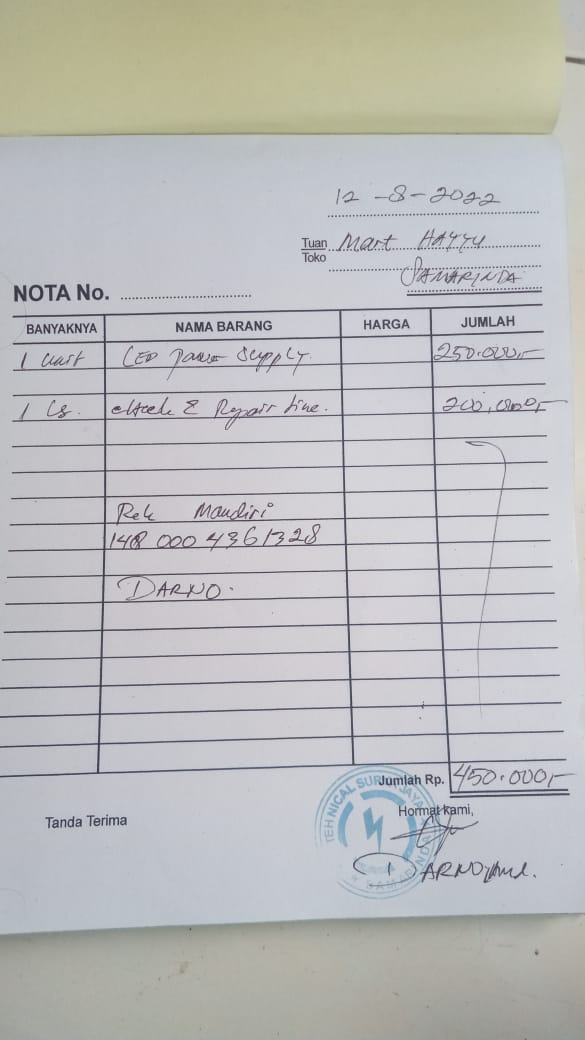 12-8-2022
Tuan Toko Mart HAYYU
SAMARINDA
NOTA No.
BANYAKNYA NAMA BARANG HARGA JUMLAH
1 unit LED Power Supply. 250.000,-
1 Ls. cHeck & Repair Line. 200.000,-
Rek Mandiri
148 000 4361328
DARNO.
Jumlah Rp. 450.000,-
Tanda Terima
Hormat kami,
TEHNICAL JAYA
SAMARINDA
DARNO